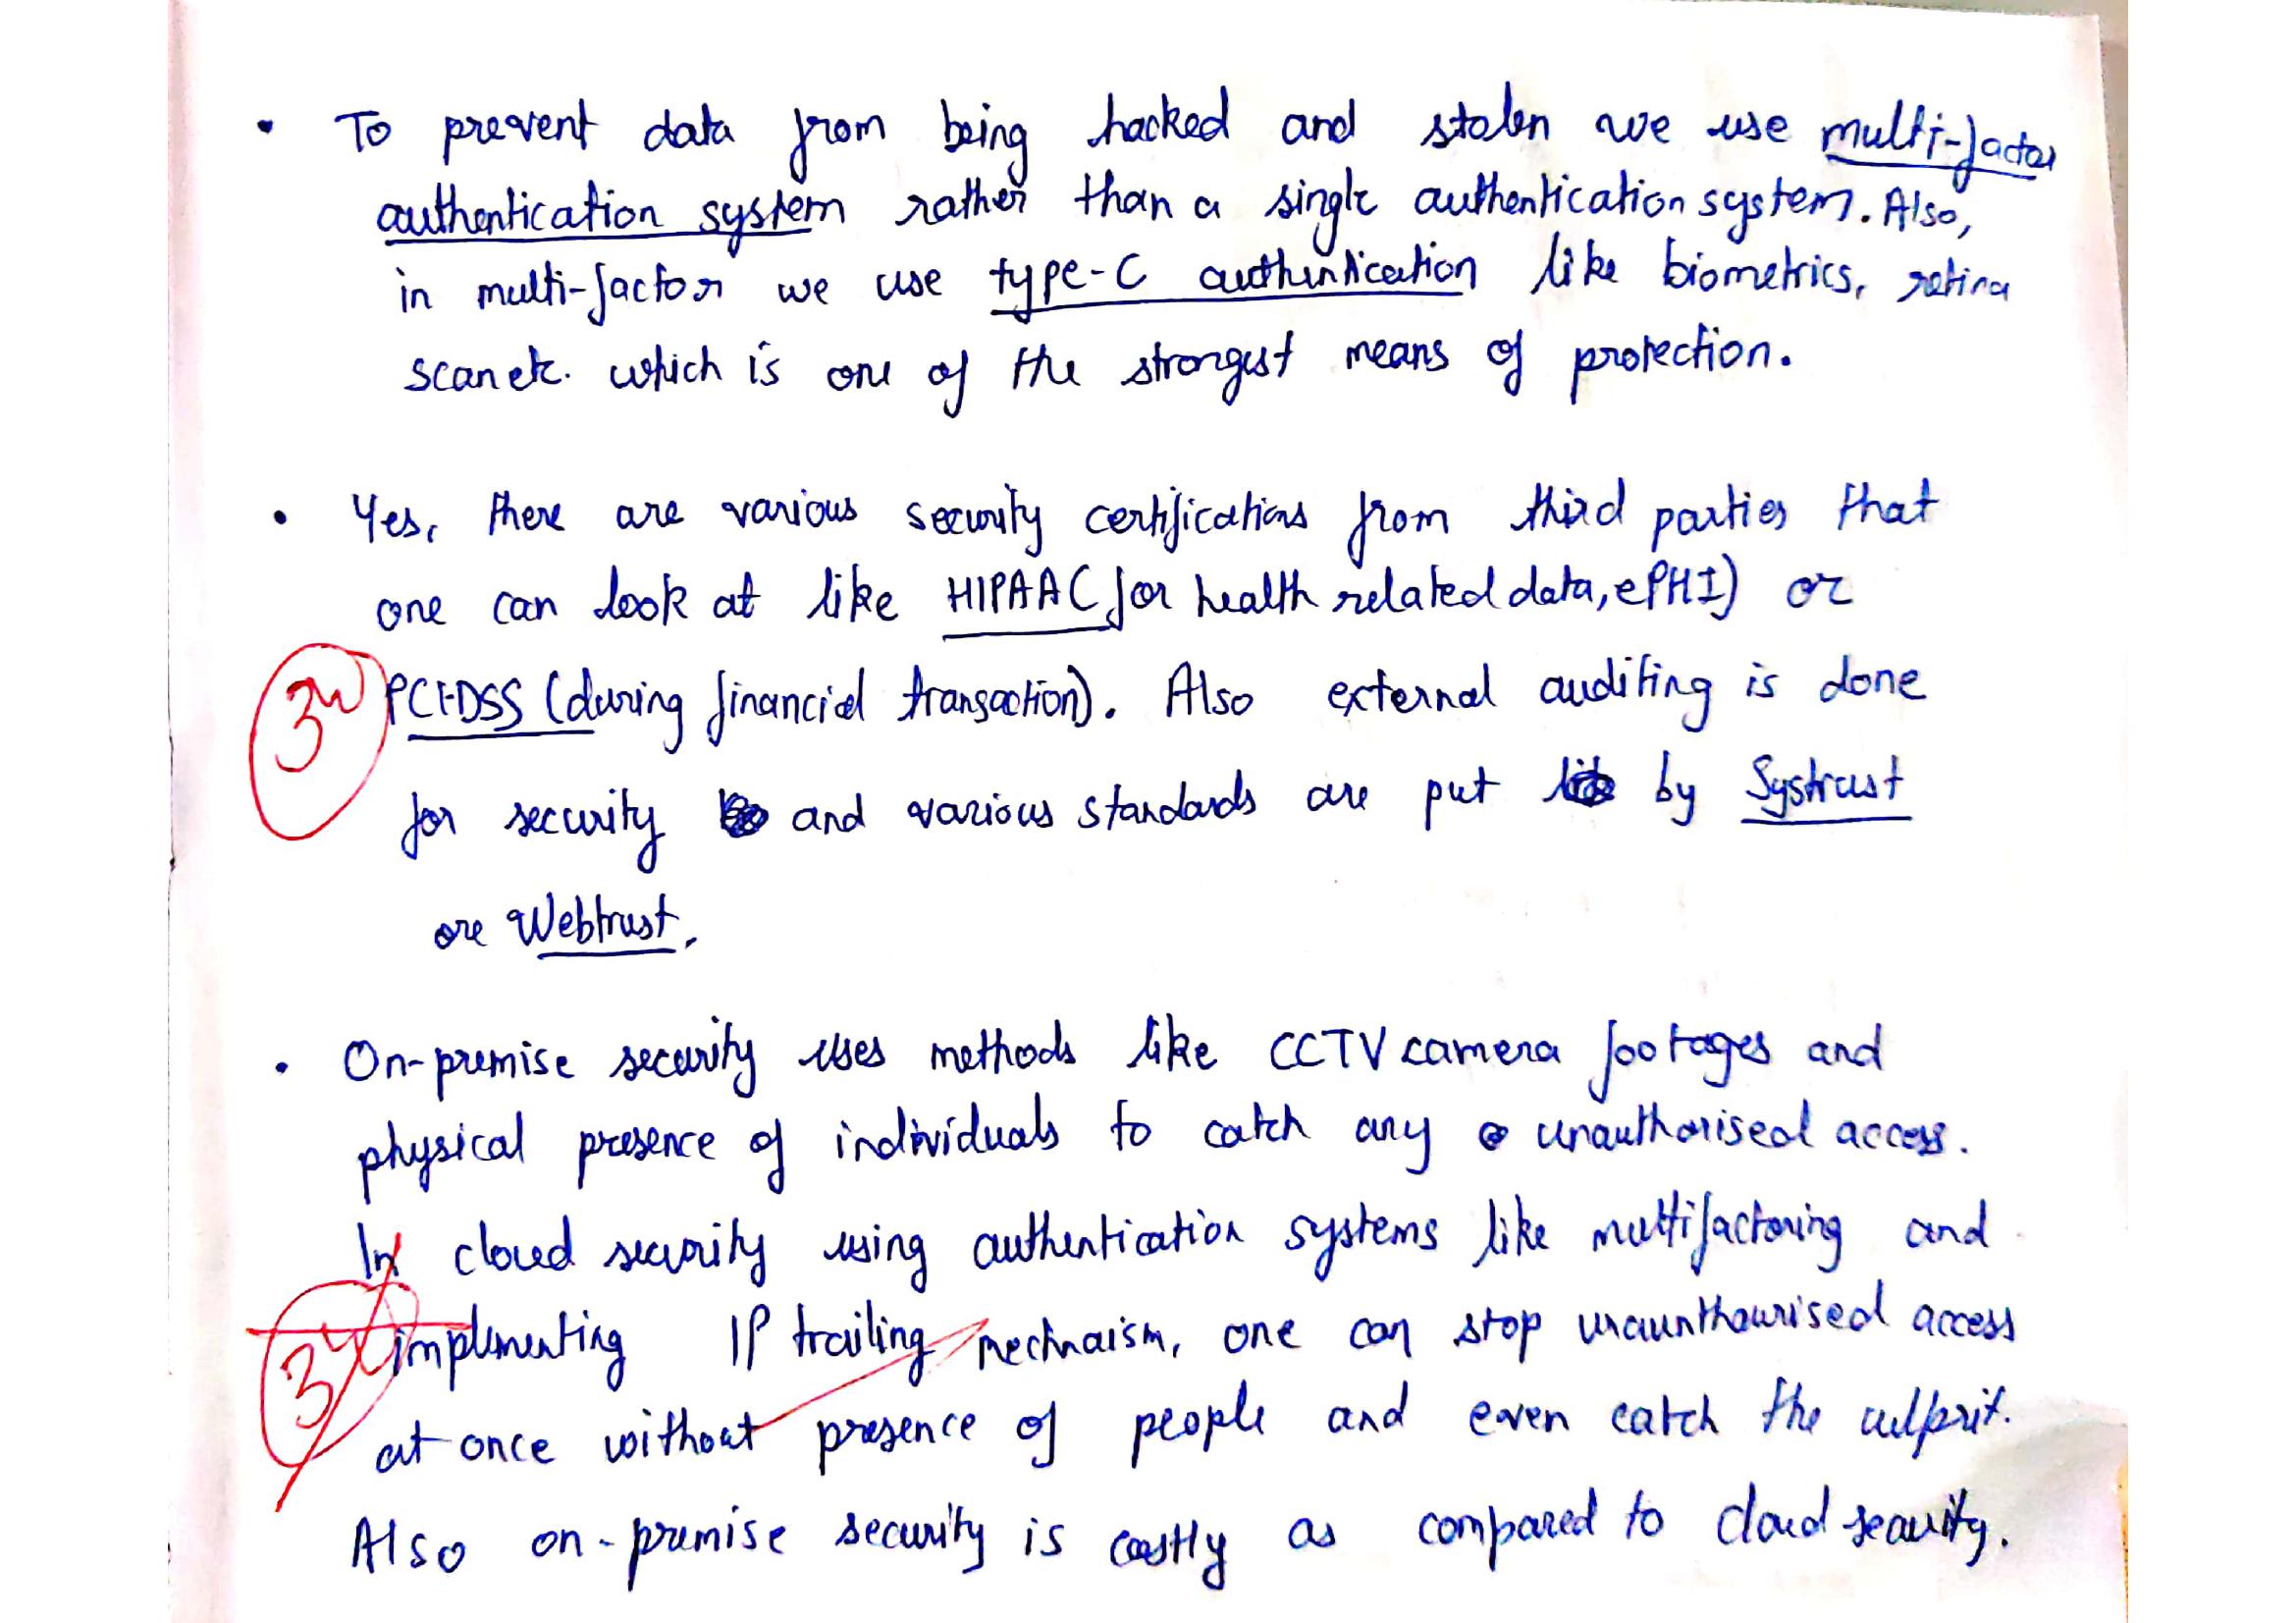 • To prevent data from being hacked and stolen we use multi-factor
authentication system rather than a single authentication system. Also,
in multi-factor we use type-C authentication like biometrics, retina
scan etc. which is one of the strongest means of protection.
• Yes, there are various security certifications from third parties that
one can look at like HIPAA (for health related data, ePHI) or
PCI-DSS (during financial transaction). Also external auditing is done
for security and various standards are put by Systrust
ore Webtrust.
• On-premise security uses methods like CCTV camera footages and
physical presence of individuals to catch any unauthorised access.
In cloud security using authentication systems like multifactoring and
implementing IP trailing mechnaism, one can stop unaunthourised access
at once without presence of people and even catch the culprit.
Also on-premise security is costly as compared to cloud security.